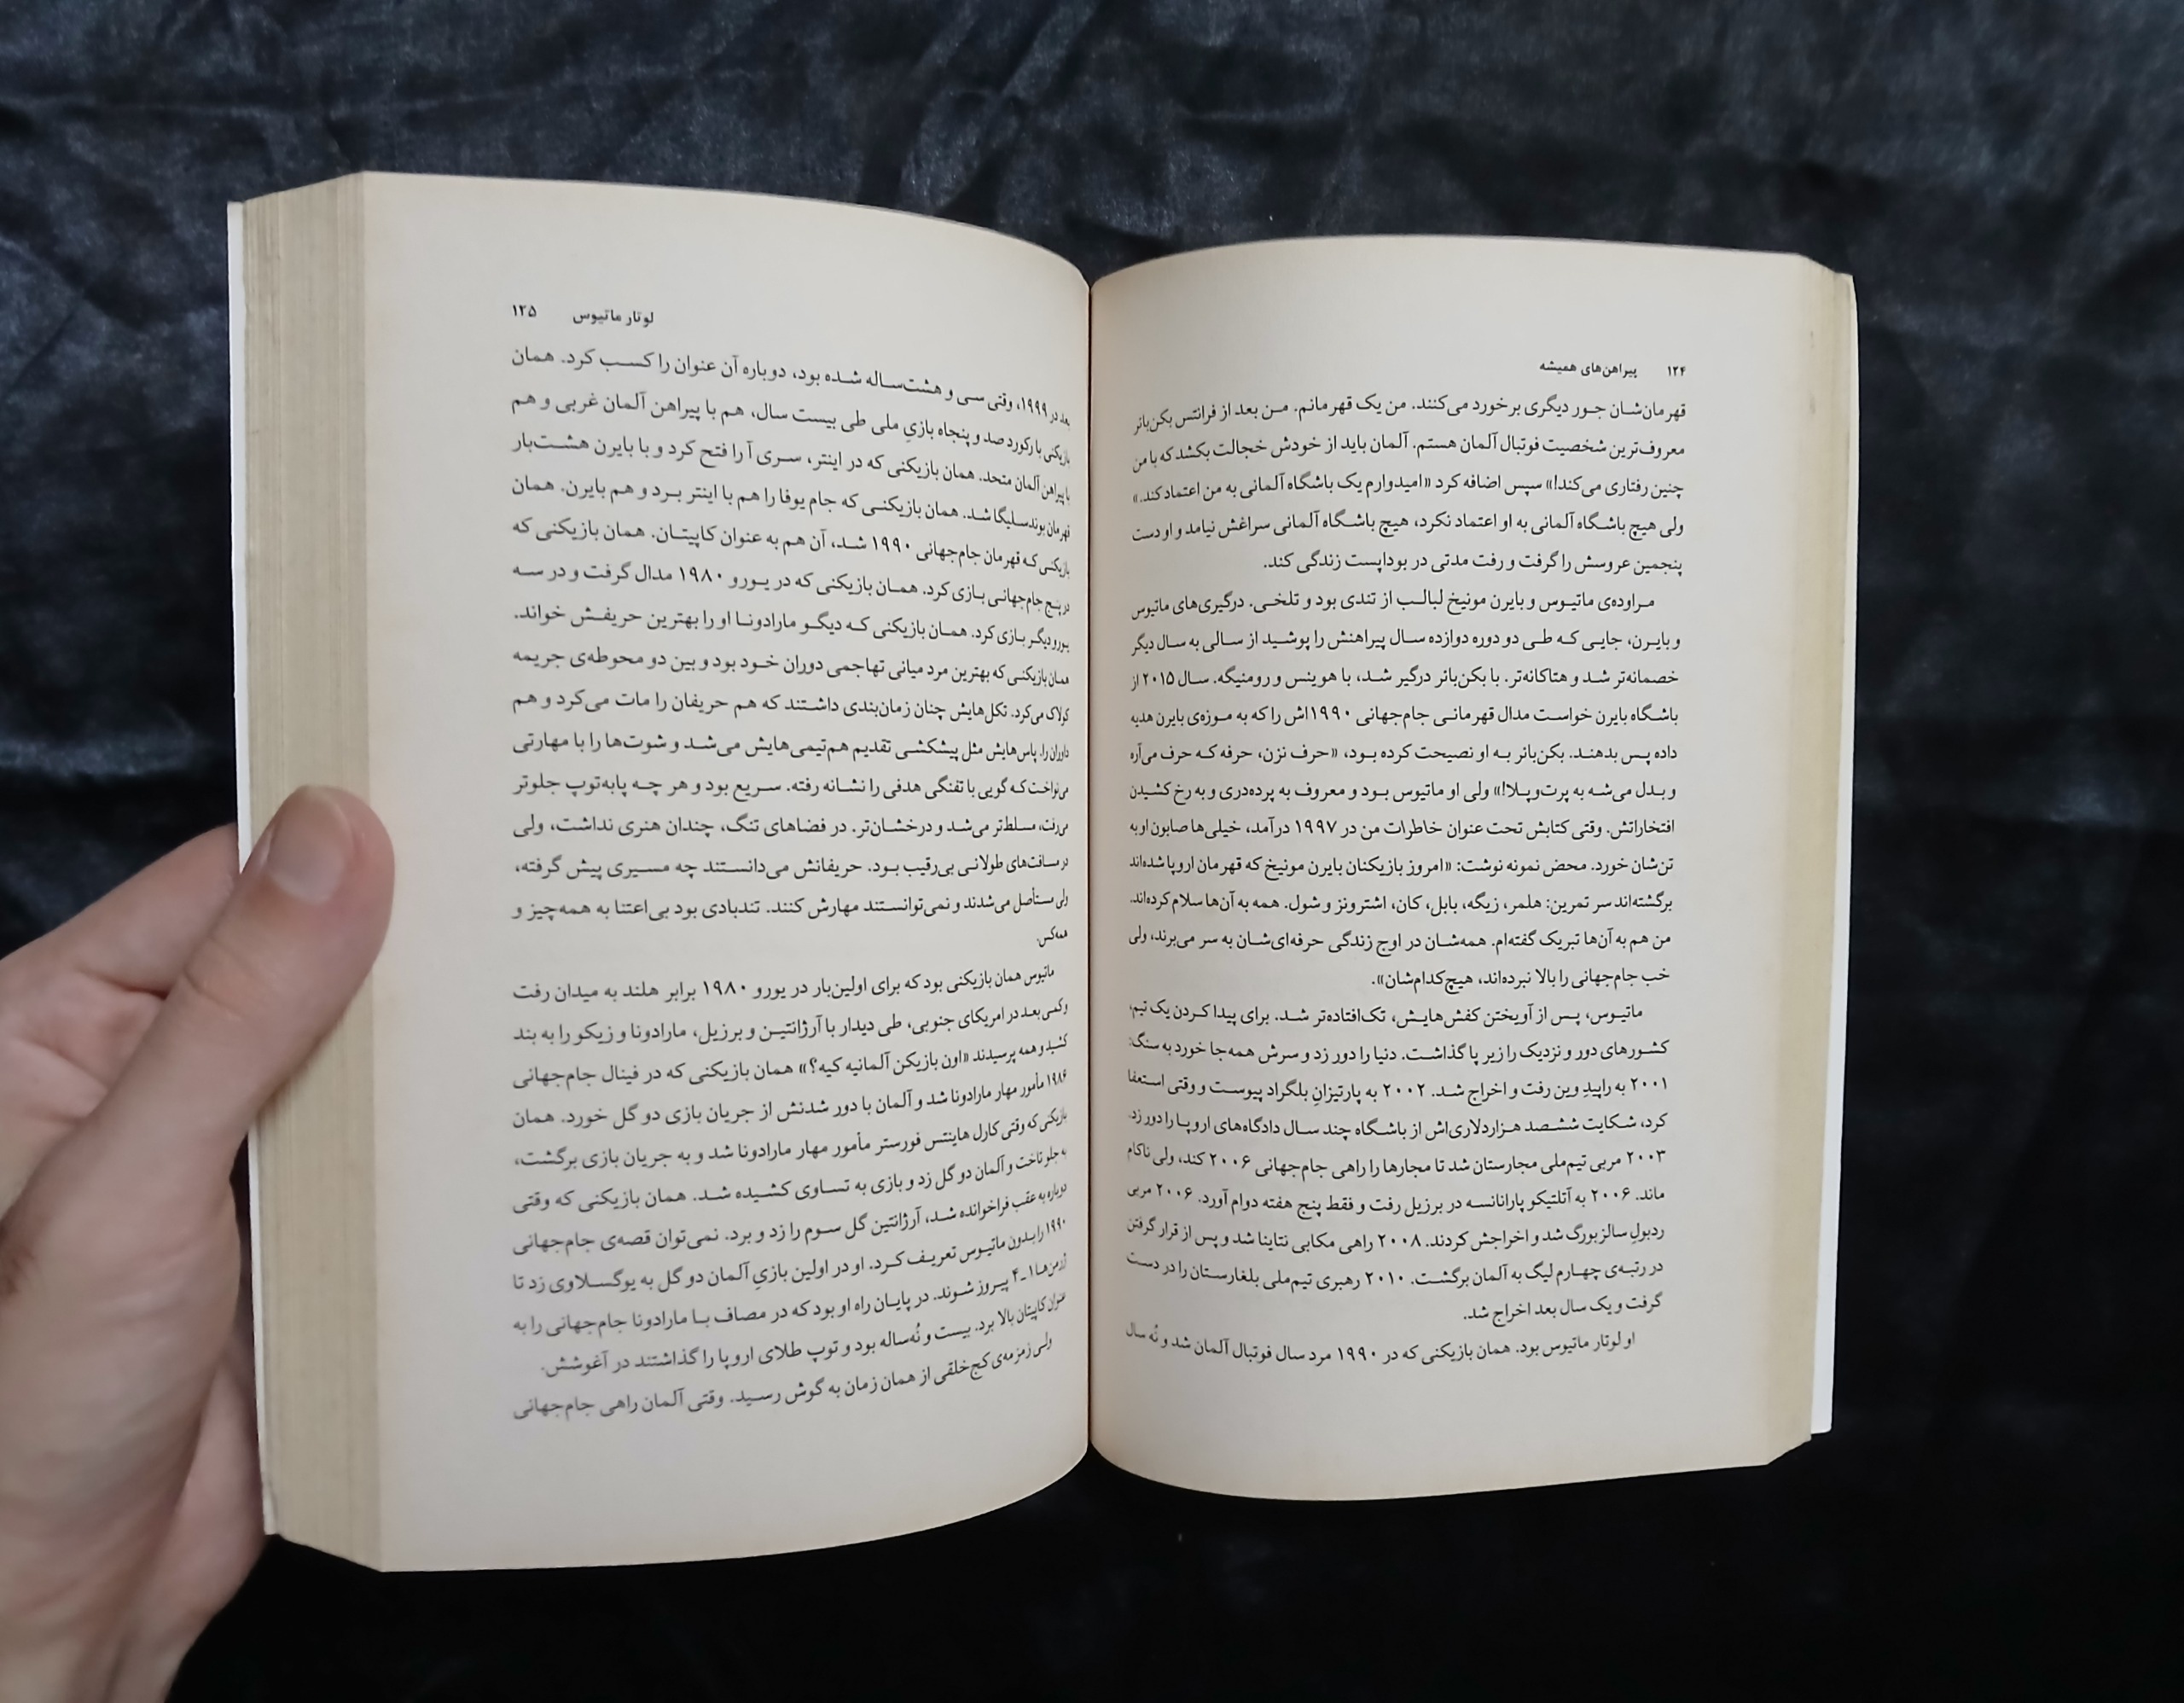 ۱۲۴ پیراهن‌های همیشه
قهرمان‌شان جور دیگری برخورد می‌کنند. من یک قهرمانم. من بعد از فرانتس بکن‌بائر
معروف‌ترین شخصیت فوتبال آلمان هستم. آلمان باید از خودش خجالت بکشد که با من
چنین رفتاری می‌کند!» سپس اضافه کرد «امیدوارم یک باشگاه آلمانی به من اعتماد کند.»
ولی هیچ باشگاه آلمانی به او اعتماد نکرد، هیچ باشگاه آلمانی سراغش نیامد و او دست
پنجمین عروسش را گرفت و رفت مدتی در بوداپست زندگی کند.
مراوده‌ی ماتیوس و بایرن مونیخ لبالب از تندی بود و تلخی. درگیری‌های ماتیوس
و بایرن، جایی که طی دو دوره دوازده سال پیراهنش را پوشید از سالی به سال دیگر
خصمانه‌تر شد و هتاکانه‌تر. با بکن‌بائر درگیر شد، با هوینس و رومنیگه. سال ۲۰۱۵ از
باشگاه بایرن خواست مدال قهرمانی جام‌جهانی ۱۹۹۰اش را که به موزه‌ی بایرن هدیه
داده پس بدهند. بکن‌بائر به او نصیحت کرده بود، «حرف نزن، حرفه که حرف می‌آره
و بدل می‌شه به پرت‌وپلا!» ولی او ماتیوس بود و معروف به پرده‌دری و به رخ کشیدن
افتخاراتش. وقتی کتابش تحت عنوان خاطرات من در ۱۹۹۷ درآمد، خیلی‌ها صابون او به
تن‌شان خورد. محض نمونه نوشت: «امروز بازیکنان بایرن مونیخ که قهرمان اروپا شده‌اند
برگشته‌اند سر تمرین: هلمر، زیگه، بابل، کان، اشترونز و شول. همه به آن‌ها سلام کرده‌اند.
من هم به آن‌ها تبریک گفته‌ام. همه‌شان در اوج زندگی حرفه‌ای‌شان به سر می‌برند، ولی
خب جام‌جهانی را بالا نبرده‌اند، هیچ‌کدام‌شان».
ماتیوس، پس از آویختن کفش‌هایش، تک‌افتاده‌تر شد. برای پیدا کردن یک تیم،
کشورهای دور و نزدیک را زیر پا گذاشت. دنیا را دور زد و سرش همه‌جا خورد به سنگ:
۲۰۰۱ به راپیدِ وین رفت و اخراج شد. ۲۰۰۲ به پارتیزانِ بلگراد پیوست و وقتی استعفا
کرد، شکایت ششصد هزاردلاری‌اش از باشگاه چند سال دادگاه‌های اروپا را دور زد.
۲۰۰۳ مربی تیم‌ملی مجارستان شد تا مجارها را راهی جام‌جهانی ۲۰۰۶ کند، ولی ناکام
ماند. ۲۰۰۶ به آتلتیکو پارانانسه در برزیل رفت و فقط پنج هفته دوام آورد. ۲۰۰۶ مربی
ردبولِ سالزبورگ شد و اخراجش کردند. ۲۰۰۸ راهی مکابی نتاینا شد و پس از قرار گرفتن
در رتبه‌ی چهارم لیگ به آلمان برگشت. ۲۰۱۰ رهبری تیم‌ملی بلغارستان را در دست
گرفت و یک سال بعد اخراج شد.
او لوتار ماتیوس بود. همان بازیکنی که در ۱۹۹۰ مرد سال فوتبال آلمان شد و نُه سال
لوتار ماتیوس ۱۲۵
بعد در ۱۹۹۹، وقتی سی و هشت‌ساله شده بود، دوباره آن عنوان را کسب کرد. همان
بازیکنی با رکورد صد و پنجاه بازیِ ملی طی بیست سال، هم با پیراهن آلمان غربی و هم
با پیراهن آلمان متحد. همان بازیکنی که در اینتر، سری آ را فتح کرد و با بایرن هشت‌بار
قهرمان بوندسلیگا شد. همان بازیکنی که جام یوفا را هم با اینتر برد و هم بایرن. همان
بازیکنی که قهرمان جام‌جهانی ۱۹۹۰ شد، آن هم به عنوان کاپیتان. همان بازیکنی که
در پنج جام‌جهانی بازی کرد. همان بازیکنی که در یورو ۱۹۸۰ مدال گرفت و در سه
یورو دیگر بازی کرد. همان بازیکنی که دیگو مارادونا او را بهترین حریفش خواند.
همان بازیکنی که بهترین مرد میانی تهاجمی دوران خود بود و بین دو محوطه‌ی جریمه
کولاک می‌کرد. تکل‌هایش چنان زمان‌بندی داشتند که هم حریفان را مات می‌کرد و هم
داوران را. پاس‌هایش مثل پیشکشی تقدیم هم‌تیمی‌هایش می‌شد و شوت‌ها را با مهارتی
می‌نواخت که گویی با تفنگی هدفی را نشانه رفته. سریع بود و هر چه پابه‌توپ جلوتر
می‌رفت، مسلط‌تر می‌شد و درخشان‌تر. در فضاهای تنگ، چندان هنری نداشت، ولی
در مسافت‌های طولانی بی‌رقیب بود. حریفانش می‌دانستند چه مسیری پیش گرفته،
ولی مستأصل می‌شدند و نمی‌توانستند مهارش کنند. تندبادی بود بی‌اعتنا به همه‌چیز و
همه‌کس.
ماتیوس همان بازیکنی بود که برای اولین‌بار در یورو ۱۹۸۰ برابر هلند به میدان رفت
و کمی بعد در امریکای جنوبی، طی دیدار با آرژانتین و برزیل، مارادونا و زیکو را به بند
کشید و همه پرسیدند «اون بازیکن آلمانیه کیه؟» همان بازیکنی که در فینال جام‌جهانی
۱۹۸۶ مأمور مهار مارادونا شد و آلمان با دور شدنش از جریان بازی دو گل خورد. همان
بازیکنی که وقتی کارل هاینتس فورستر مأمور مهار مارادونا شد و به جریان بازی برگشت،
به جلو تاخت و آلمان دو گل زد و بازی به تساوی کشیده شد. همان بازیکنی که وقتی
دوباره به عقب فراخوانده شد، آرژانتین گل سوم را زد و برد. نمی‌توان قصه‌ی جام‌جهانی
۱۹۹۰ را بدون ماتیوس تعریف کرد. او در اولین بازیِ آلمان دو گل به یوگسلاوی زد تا
ژرمن‌ها ۱-۴ پیروز شوند. در پایان راه او بود که در مصاف با مارادونا جام‌جهانی را به
عنوان کاپیتان بالا برد. بیست و نُه‌ساله بود و توپ طلای اروپا را گذاشتند در آغوشش.
ولی زمزمه‌ی کج‌خلقی از همان زمان به گوش رسید. وقتی آلمان راهی جام‌جهانی